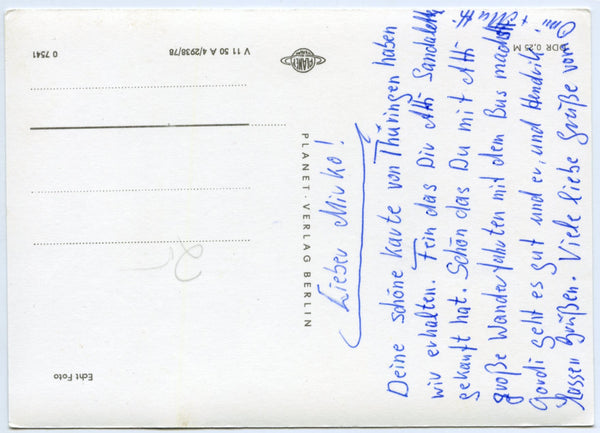 Lieber Mirko!
Deine schöne Karte von Thüringen haben
wir erhalten. Fein das Dir Atti Sandaletten
gekauft hat. Schön das Du mit Atti
große Wanderfahrten mit dem Bus machst.
Gordi geht es gut und er, und Hendrik
lassen Grüßen. Viele liebe Grüße von
Omi + Mutti
PLANET-VERLAG BERLIN
PLANET
V 11 50 A 4/2938/78
0 7541
DDR 0,25 M
Echt Foto